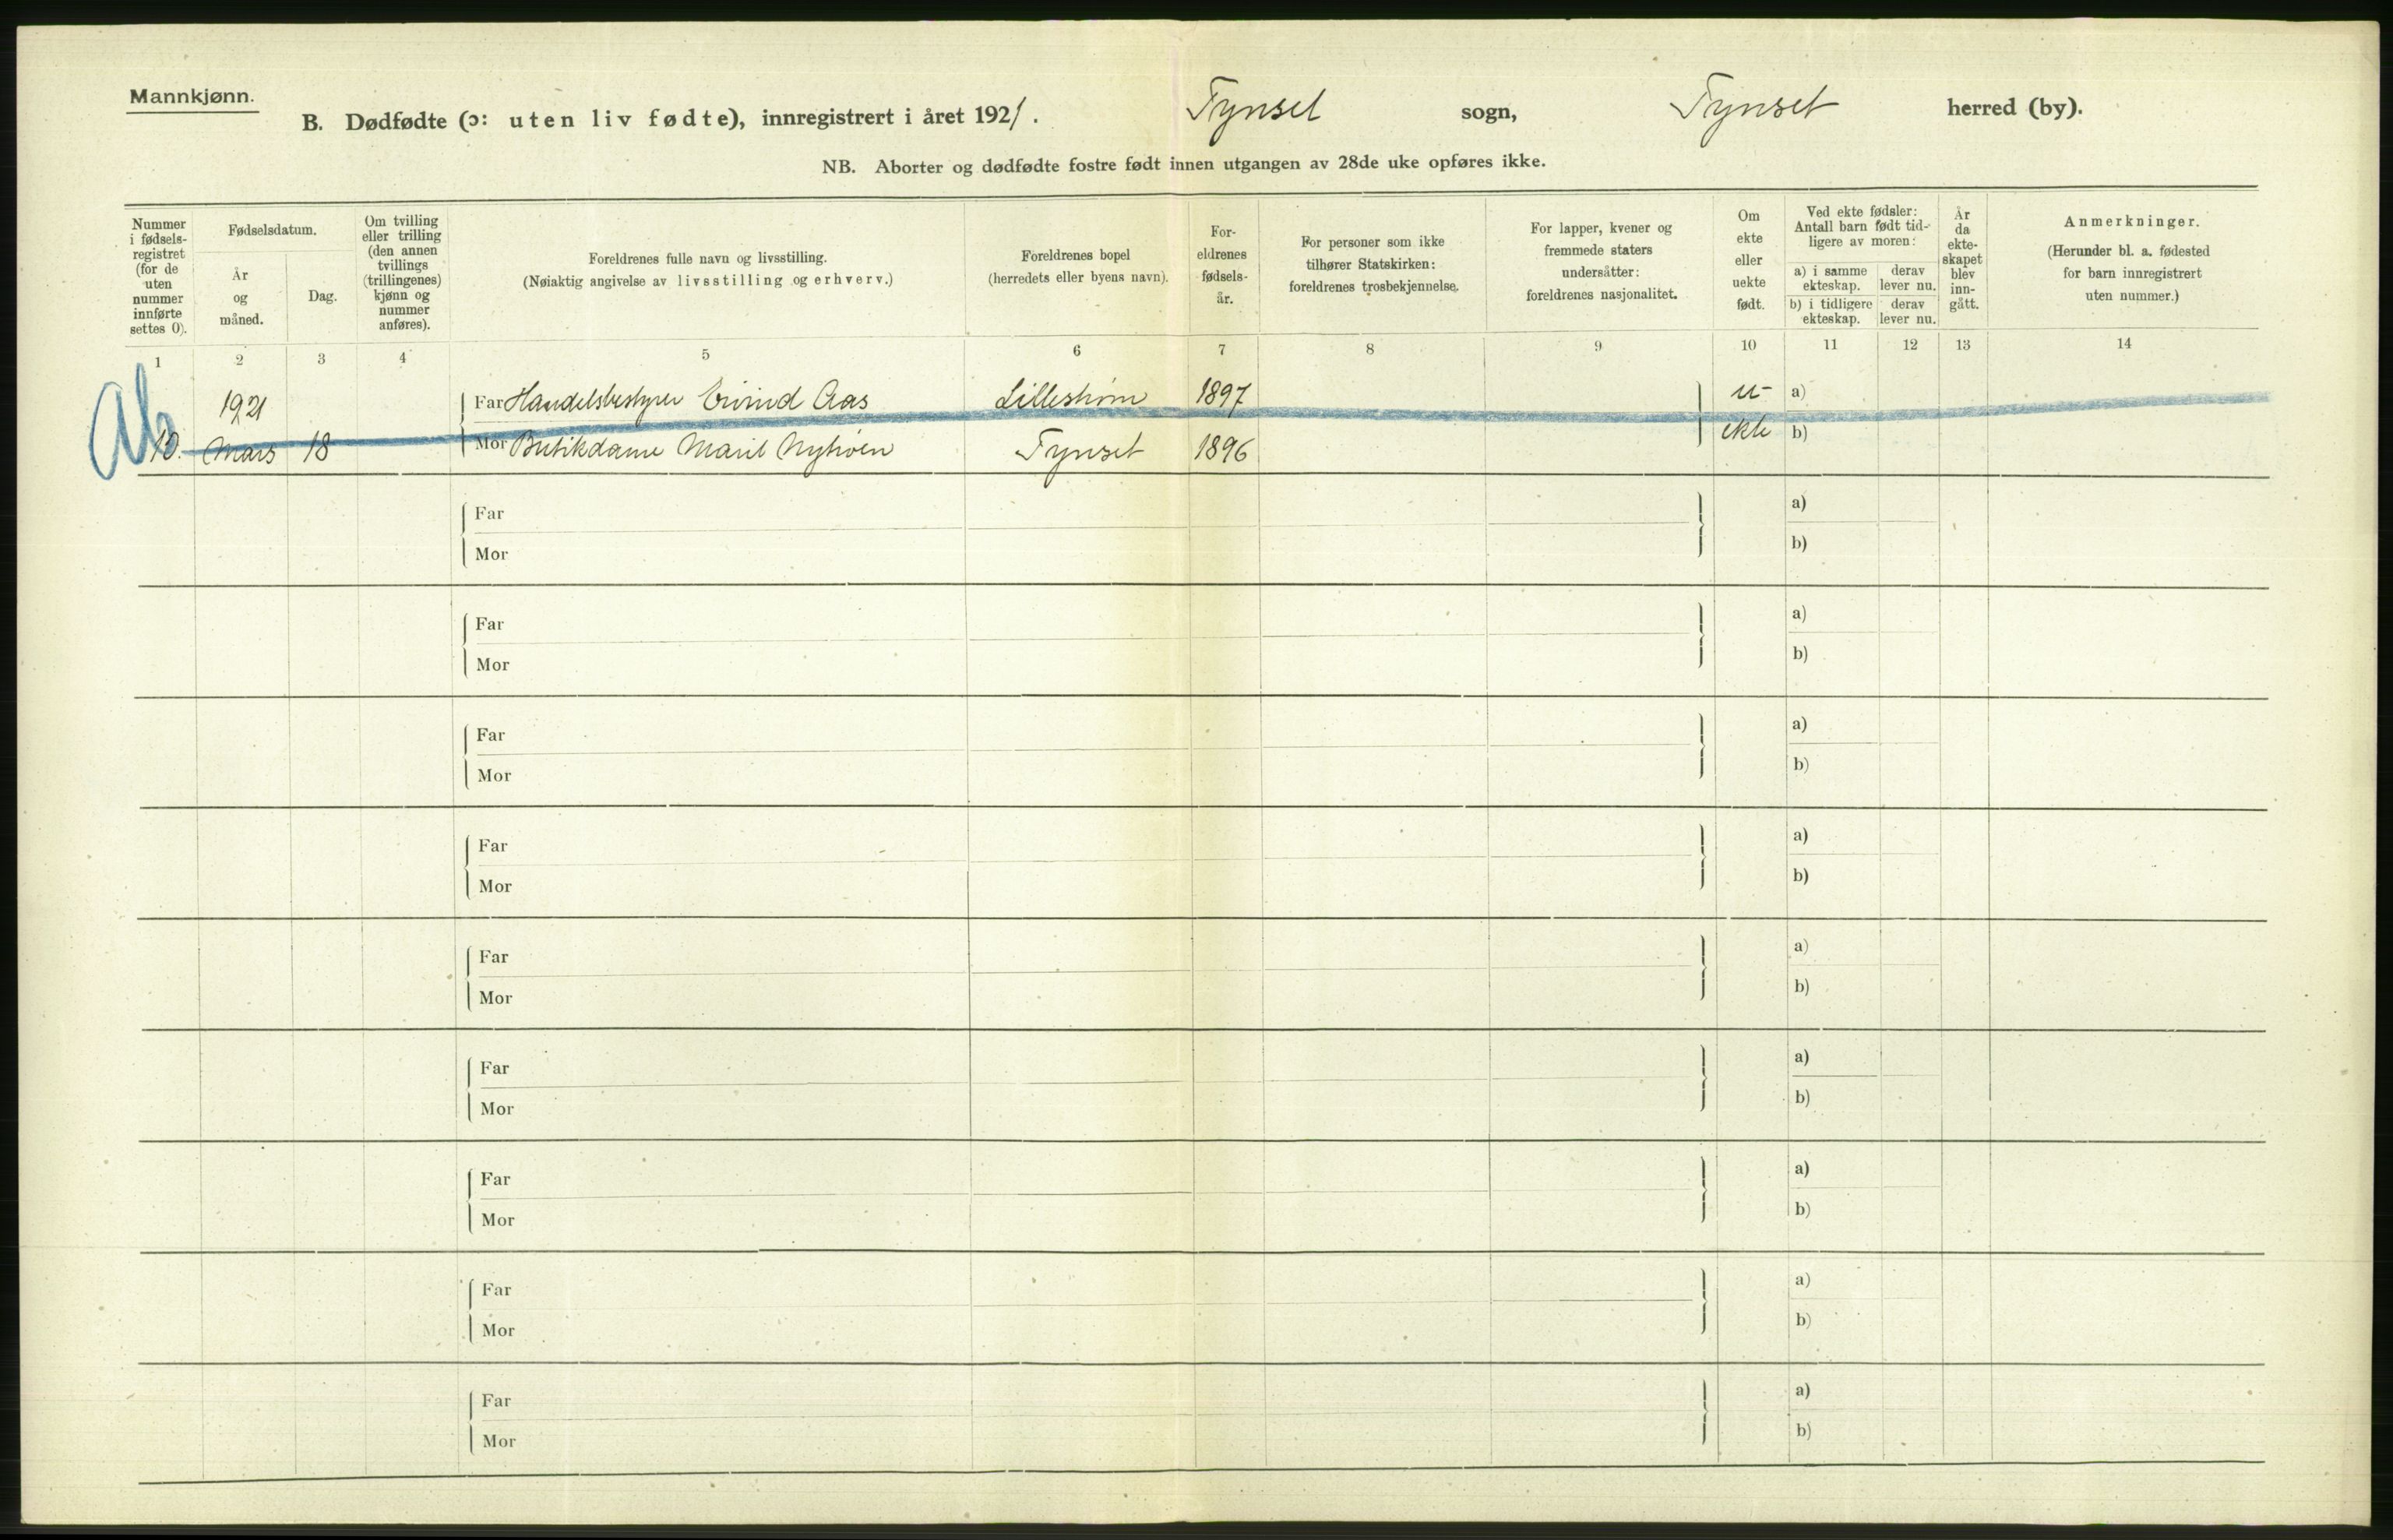 Mannkjønn.
B. Dødfødte (ɔ: uten liv fødte), innregistrert i året 1921. Tynset sogn, Tynset herred (by).
NB. Aborter og dødfødte fostre født innen utgangen av 28de uke opføres ikke.
Nummer i fødsels-registret (for de uten nummer innførte settes 0).
Fødselsdatum.
År og måned.
Dag.
Om tvilling eller trilling (den annen tvillings (trillingenes) kjønn og nummer anføres).
Foreldrenes fulle navn og livsstilling.
(Nøiaktig angivelse av livsstilling og erhverv.)
Foreldrenes bopel
(herredets eller byens navn).
For-eldrenes fødsels-år.
For personer som ikke tilhører Statskirken: foreldrenes trosbekjennelse.
For lapper, kvener og fremmede staters undersåtter: foreldrenes nasjonalitet.
Om ekte eller uekte født.
Ved ekte fødsler: Antall barn født tid-ligere av moren:
a) i samme ekteskap.
derav lever nu.
b) i tidligere ekteskap.
derav lever nu.
År da ekte-skapet blev inn-gått.
Anmerkninger.
(Herunder bl. a. fødested for barn innregistrert uten nummer.)
1 2 3 4 5 6 7 8 9 10 11 12 13 14
Ab
1921 Far Handelsbestyrer Eivind Aas Lillestrøm 1897 u- a)
10. Mars 18 Mor Butikdame Marit Nytrøen Tynset 1896 ekte b)
Far a)
Mor b)
Far a)
Mor b)
Far a)
Mor b)
Far a)
Mor b)
Far a)
Mor b)
Far a)
Mor b)
Far a)
Mor b)
Far a)
Mor b)
Far a)
Mor b)